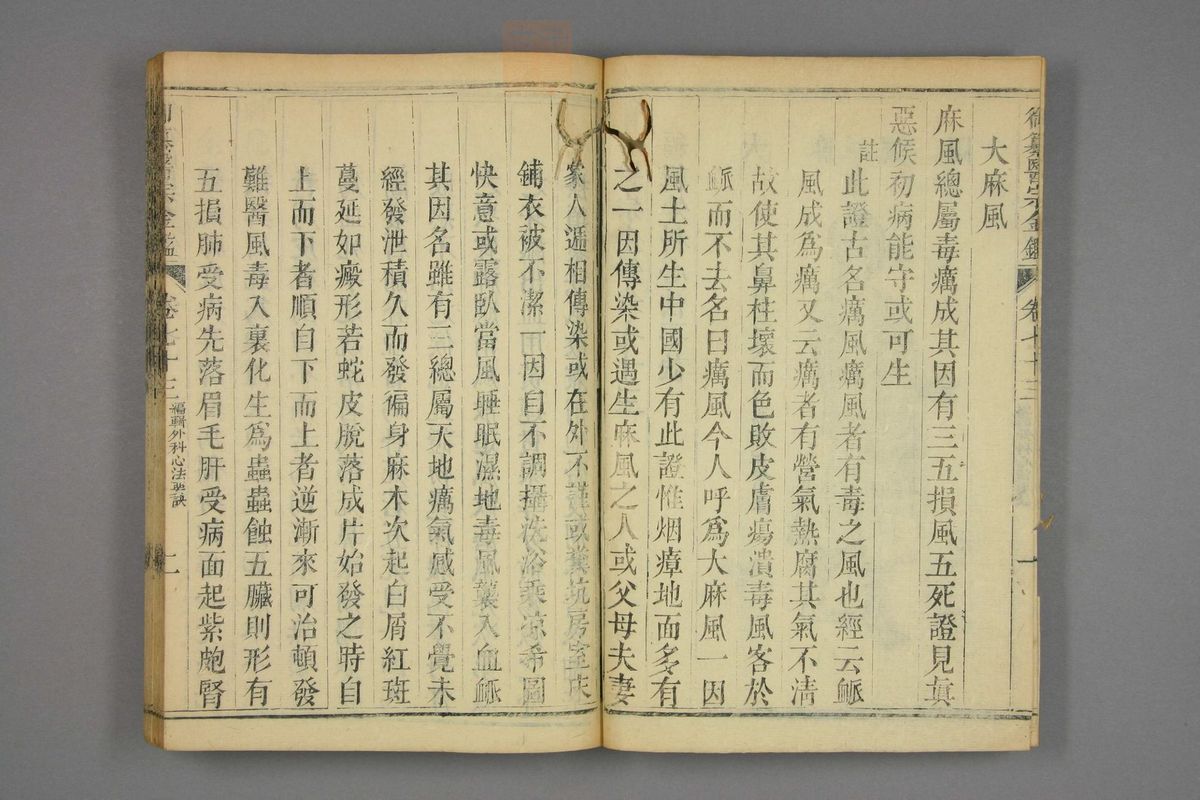 御纂醫宗金鑑 卷七十三
大麻風
麻風總屬毒癘成其因有三五損風五死證見真
惡候初病能守或可生
註
此證古名癘風癘風者有毒之風也經云脈
風成爲癘又云癘者有營氣熱腐其氣不清
故使其鼻柱壞而色敗皮膚瘍潰毒風客於
脈而不去名曰癘風今人呼爲大麻風一因
風土所生中國少有此證惟烟瘴地面多有
之一因傳染或遇生麻風之人或父母夫妻
家人遞相傳染或在外不謹或糞坑房室床
鋪衣被不潔一因自不調攝洗浴乘涼希圖
快意或露臥當風睡眠濕地毒風襲入血脈
其因名雖有三總屬天地癘氣感受不覺未
經發泄積久而發徧身麻木次起白屑紅斑
蔓延如癜形若蛇皮脫落成片始發之時自
上而下者順自下而上者逆漸來可治頓發
難醫風毒入裏化生爲蟲蟲蝕五臟則形有
五損肺受病先落眉毛肝受病面起紫皰腎
卷七十三 編輯外科心法要訣 一